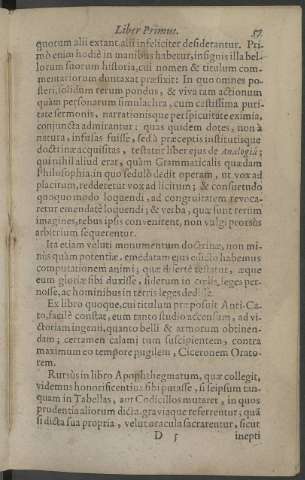 Liber Primus. 57
quorum alii extant alii infeliciter desiderantur. Pri-
mò enim hodiè in manibus habetur, insignis illa bel-
lorum suorum historia, cui nomen & titulum com-
mentariorum duntaxat præfixit: In quo omnes po-
steri, solidum rerum pondus, & vivā tam actionum
quàm personarum simulachra, cum castissima puri-
tate sermonis, narrationisque perspicuitate eximia,
conjuncta admirantur: quas quidem dotes, non à
natura infusas fuisse, sed à præceptis institutisque
doctrinæ acquisitas, testatur liber ejus de Analogia;
qui nihil aliud erat, quàm Grammaticalis quædam
Philosophia, in quo sedulò dedit operam, ut vox ad
placitum, redderetur vox ad licitum; & consuetudo
quoquo modo loquendi, ad congruitatem revoca-
retur emendatè loquendi; & verba, quæ sunt rerum
imagines, rebus ipsis convenirent, non vulgi prorsùs
arbitrium sequerentur.
Ita etiam veluti monumentum doctrinæ, non mi-
nùs quàm potentiæ, emēdatam ejus edicto habemus
computationem anni; quæ disertè testatur, æque
eum gloriæ sibi duxisse, siderum in cœlis leges per-
nosse, ac hominibus in terris leges dedisse.
Ex libro quoque, cui titulum præposuit Anti-Ca-
to, facilè constat, eum tanto studio accensum, ad vi-
ctoriam ingenii, quanto belli & armorum obtinen-
dam; certamen calami tum suscipientem, contra
maximum eo tempore pugilem, Ciceronem Orato-
rem.
Rursùs in libro Apophthegmatum, quæ collegit,
videmus honorificentius sibi putasse, si seipsum tan-
quam in Tabellas, aut Codicillos mutaret, in quos
prudentia aliorum dicta, gravia que referrentur; quā
si dicta sua propria, velut oracula sacrarentur, sicut
D 5 inepti